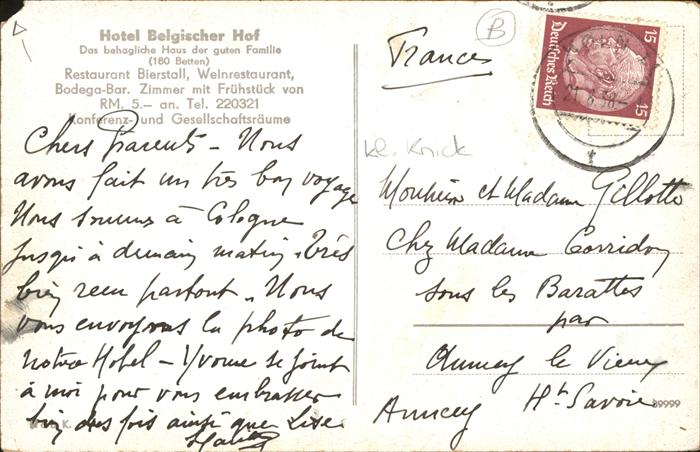 Hotel Belgischer Hof
Das behagliche Haus der guten Familie
(180 Betten)
Restaurant Bierstall, Weinrestaurant,
Bodega-Bar. Zimmer mit Frühstück von
RM. 5.— an. Tel. 220321
Konferenz- und Gesellschaftsräume
Chers Parents - Nous
avons fait un très bon voyage
Nous sommes à Cologne
jusqu'à demain matin. Très
bien reçu partout. Nous
vous envoyons la photo de
notre Hotel - Yvonne se joint
à moi pour vous embrasser
bien des fois ainsi que Lise.
K.
B
France
Deutsches Reich
15
15
21.6.38
kl. Knick
Monsieur et Madame Gillotte
Chez Madame Corridon
sous les Barattes
par
Annecy le Vieux
Annecy Hte Savoie
89999